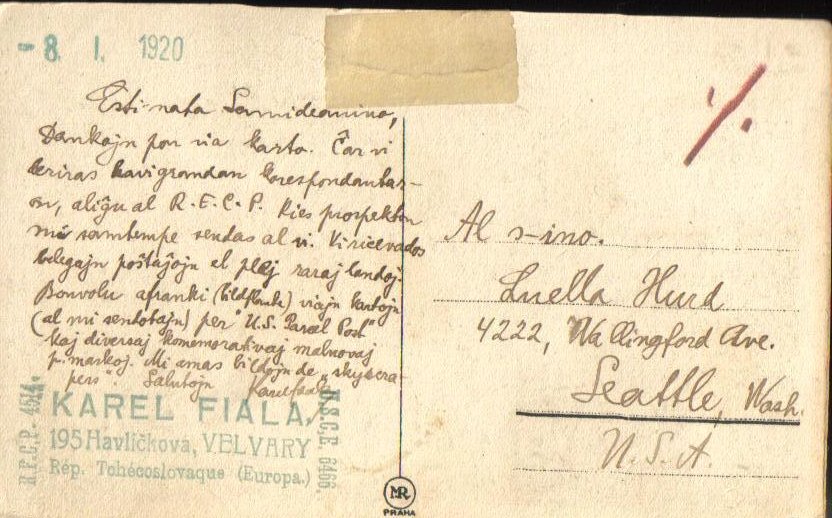 - 8. I. 1920
Estimata Samideanino,
Dankojn por via karto. Ĉar vi
deziras havi grandan korespondantar-
on, aliĝu al R.E.C.P. kies prospekton
mi samtempe sendas al vi. Vi ricevados
belegajn poŝtaĵojn el plej raraj landoj.
Bonvolu afranki (bildflanke) viajn kartojn
(al mi sendotajn) per "U.S. Parcel Post"
kaj diversaj komemorativaj malnovaj
p. markoj. Mi amas bildojn de "skyscra-
pers". Salutojn Karel Fiala
KAREL FIALA,
195 Havlíčkova, VELVARY
Rép. Tchécoslovaque (Europa.)
R.E.C.P. 4514.
6466.
MR
PRAHA
%
Al s-ino.
Luella Hurd
4222, Wallingford Ave.
Seattle, Wash.
U.S.A.